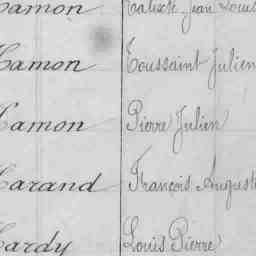 Hamon Calixte Jean Louis
Hamon Toussaint Julien
Hamon Pierre Julien
Harand François Auguste
Hardy Louis Pierre